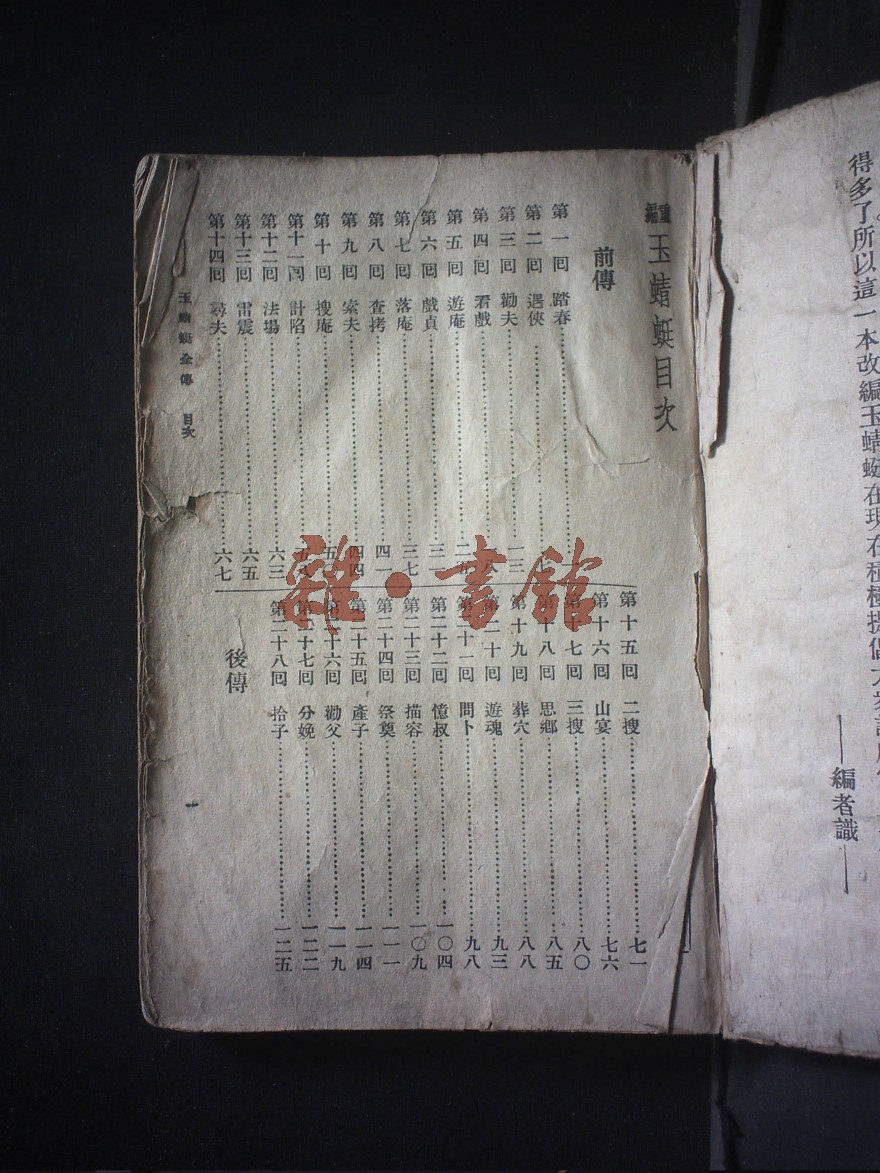 得多了所以這一本改編玉蜻蜓在現在積極提倡大衆
——編者識——
重編 玉蜻蜓目次
前傳
第一回 踏春
第二回 遇俠 七
第三回 勸夫 一三
第四回 看戲
第五回 遊庵
第六回 戲貞
第七回 落庵 三七
第八回 查拷 四一
第九回 索夫 四四
第十回 搜庵
第十一回 計陷
第十二回 法場 六三
第十三回 雷震 六五
第十四回 尋夫 六七
第十五回 二搜 七一
第十六回 山宴 七六
第十七回 三搜 八〇
第十八回 思鄉 八五
第十九回 葬穴 八八
第二十回 遊魂 九三
第二十一回 問卜 九八
第二十二回 憶叔 一〇四
第二十三回 描容 一〇九
第二十四回 祭奠 一一一
第二十五回 產子 一一四
第二十六回 勸父 一一九
第二十七回 分娩 一二二
第二十八回 拾子 一二五
後傳
玉蜻蜓全傳 目次
一
雜·書館